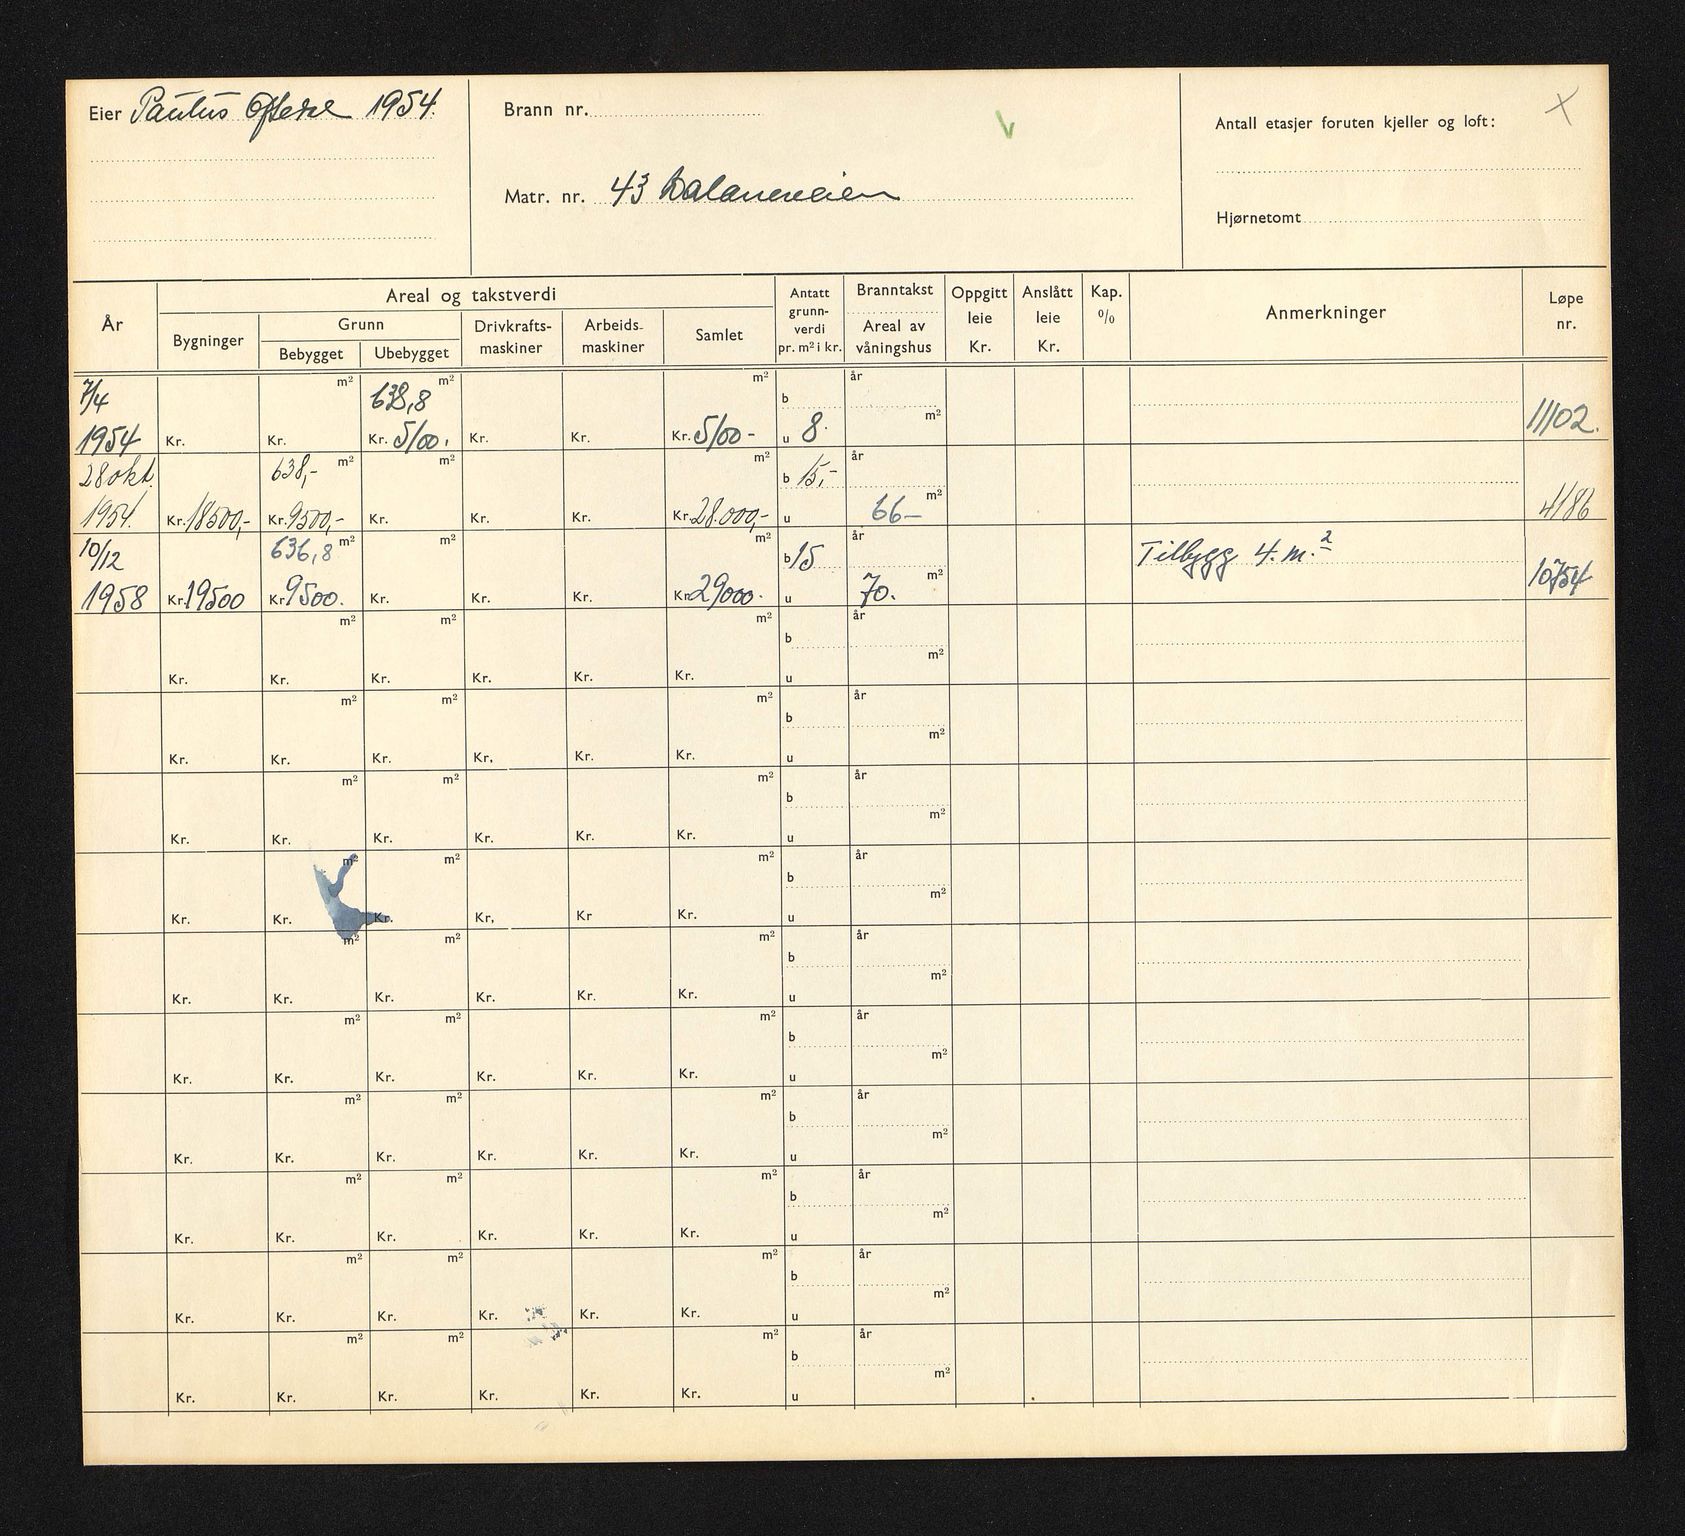 Eier Paulus Oftedal 1954.
Brann nr.
Matr. nr. 43 Dalaneveien
Antall etasjer foruten kjeller og loft:
Hjørnetomt
År
Areal og takstverdi
Bygninger
Grunn
Bebygget
Ubebygget
Drivkrafts-
maskiner
Arbeids-
maskiner
Samlet
Antatt
grunn-
verdi
pr. m² i kr.
Branntakst
Areal av
våningshus
Oppgitt
leie
Kr.
Anslått
leie
Kr.
Kap.
%
Anmerkninger
Løpe
nr.
7/4 m² 638,8 m² m² b år
1954 Kr. Kr. Kr. 5100. Kr. Kr. Kr. 5100- u 8. m² 11102.
28 okt. 638,- m² m² m² b 15,- år
1954. Kr. 18500,- Kr. 9500,- Kr. Kr. Kr. Kr. 28.000,- u 66- m² 4186
10/12 636,8 m² m² m² b 15 år Tilbygg 4. m.²
1958 Kr. 19500 Kr. 9500. Kr. Kr. Kr. Kr. 29000. u 70. m² 10754
m² m² m² b år
Kr. Kr. Kr. Kr. Kr. Kr. u m²
m² m² m² b år
Kr. Kr. Kr. Kr. Kr. Kr. u m²
m² m² m² b år
Kr. Kr. Kr. Kr. Kr. Kr. u m²
m² m² m² b år
Kr. Kr. Kr. Kr. Kr Kr. u m²
m² m² m² b år
Kr. Kr. Kr. Kr. Kr. Kr. u m²
m² m² m² b år
Kr. Kr. Kr. Kr. Kr. Kr. u m²
m² m² m² b år
Kr. Kr. Kr. Kr. Kr. Kr. u m²
m² m² m² b år
Kr. Kr. Kr. Kr. Kr. Kr. u m²
m² m² m² b år
Kr. Kr. Kr. Kr. Kr. Kr. u m²
m² m² m² b år
Kr. Kr. Kr. Kr. Kr. Kr. u m²